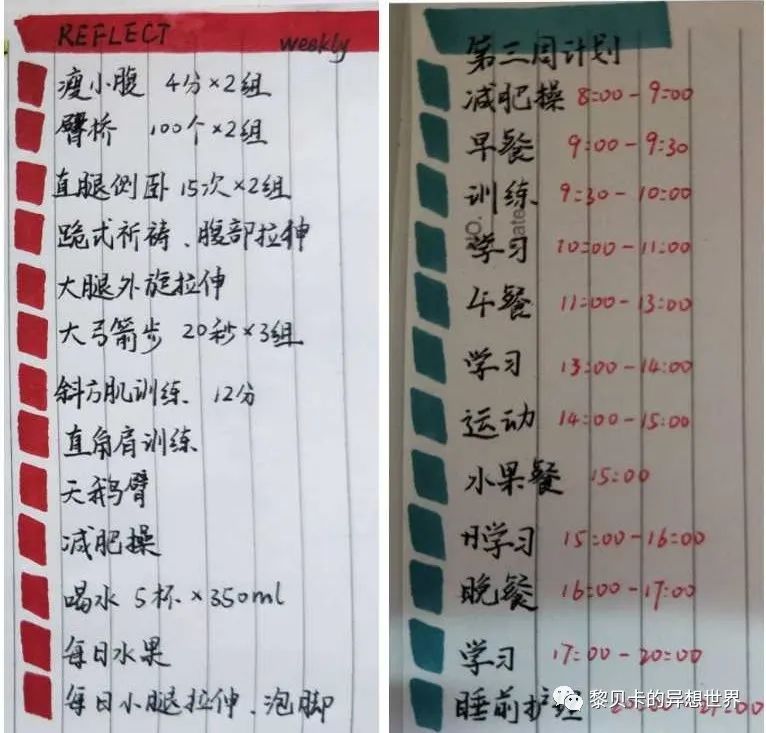 REFLECT
weekly
瘦小腹 4分×2组
臀桥 100个×2组
直腿侧卧 15次×2组
跪式祈祷、腹部拉伸
大腿外旋拉伸
大弓箭步 20秒×3组
斜方肌训练 12分
直角肩训练
天鹅臂
减肥操
喝水 5杯×350ml
每日水果
每日小腿拉伸、泡脚
第三周计划
减肥操 8:00-9:00
早餐 9:00-9:30
训练 9:30-10:00
学习 10:00-11:00
午餐 11:00-13:00
学习 13:00-14:00
运动 14:00-15:00
水果餐 15:00
学习 15:00-16:00
晚餐 16:00-17:00
学习 17:00-20:00
睡前护理
黎贝卡的异想世界